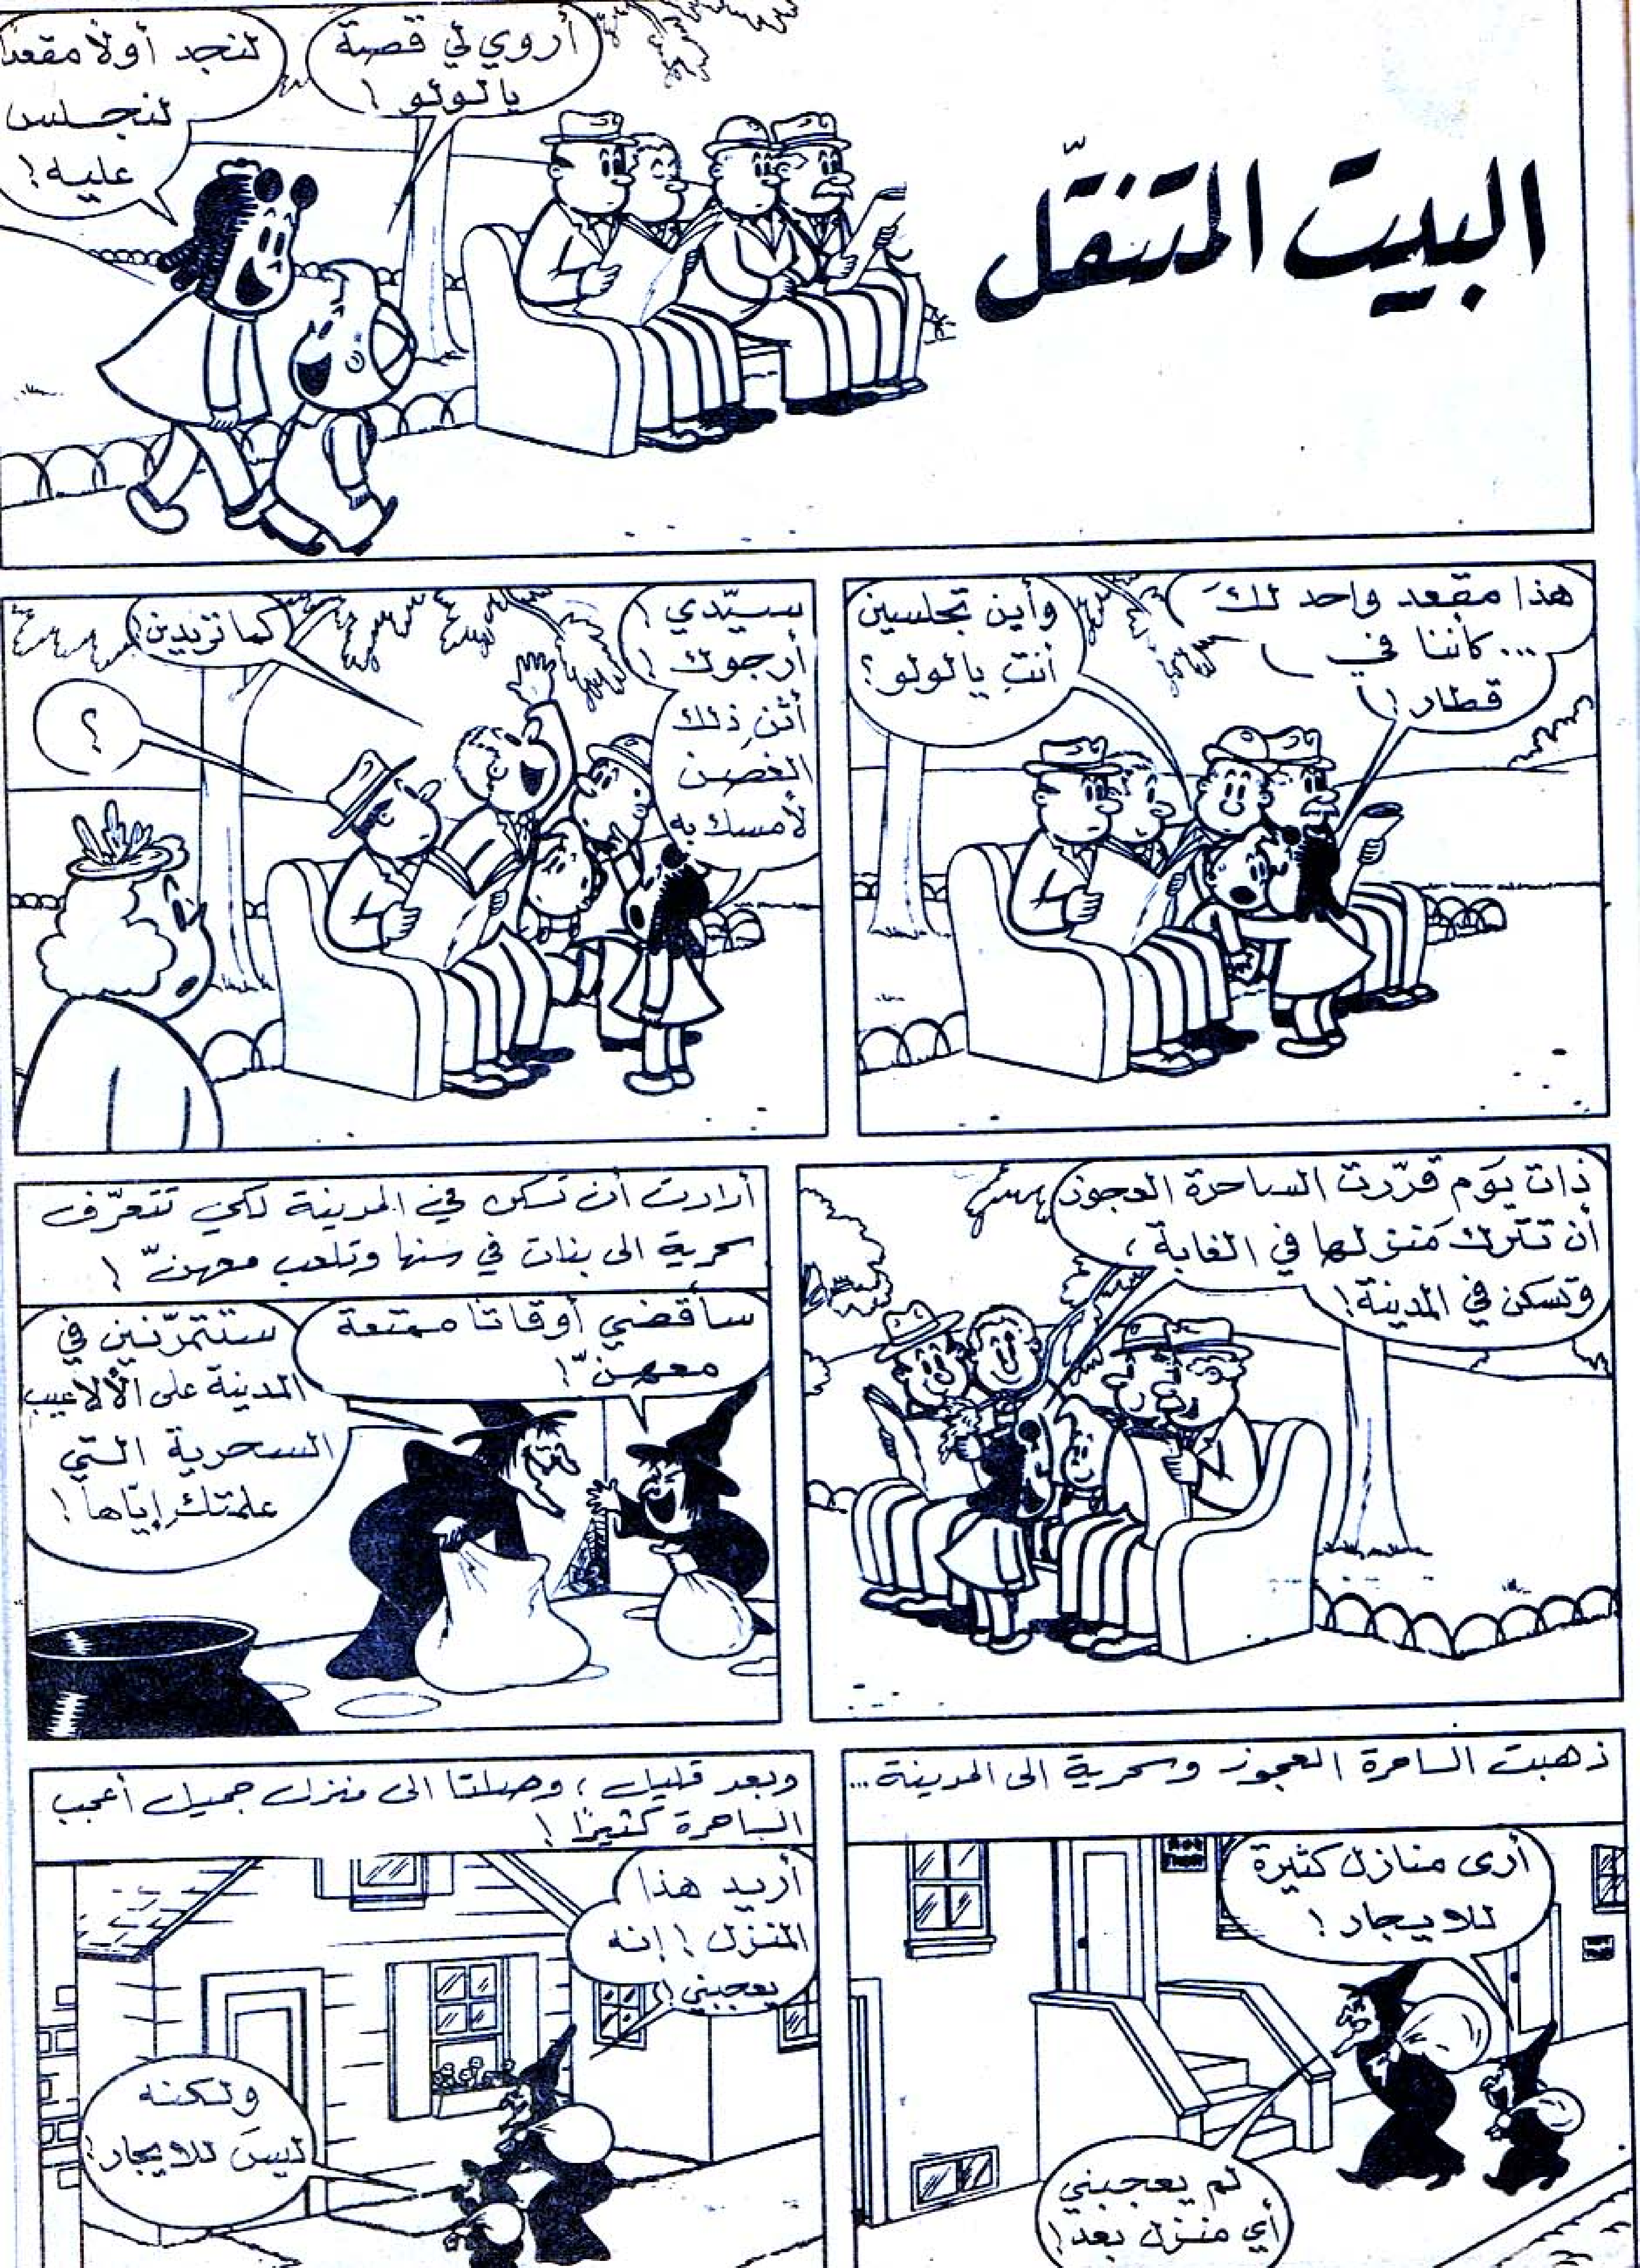 البيت المتنقّل
أروي لي قصة
يا لولو!
لنجد أولاً مقعداً
لنجلس
عليه!
هذا مقعد واحد لكَ
... كأننا في
قطار!
وأين تجلسين
أنتِ يا لولو؟
سيّدي!
أرجوك!
أثنِ ذلك
الغصن
لأمسك به
كما تريدين!
؟
ذات يَوم قرّرت الساحرة العجوز
أن تترك منزلها في الغابة،
وتسكن في المدينة!
أرادت أن تسكن في المدينة لكي تتعرّف
سحرية الى بنات في سنها وتلعب معهنّ!
سأقضي أوقاتاً ممتعة
معهنّ!
ستتمرّنين في
المدينة على الألاعيب
السحرية التي
علمتك إيّاها!
ذهبت الساحرة العجوز وسحرية الى المدينة...
أرى منازل كثيرة
للايجار!
لم يعجبني
أي منزل بعد!
وبعد قليل، وصلتا الى منزل جميل أعجب
الساحرة كثيرًا!
أريد هذا
المنزل! إنه
يعجبني!
ولكنه
ليسَ للايجار!